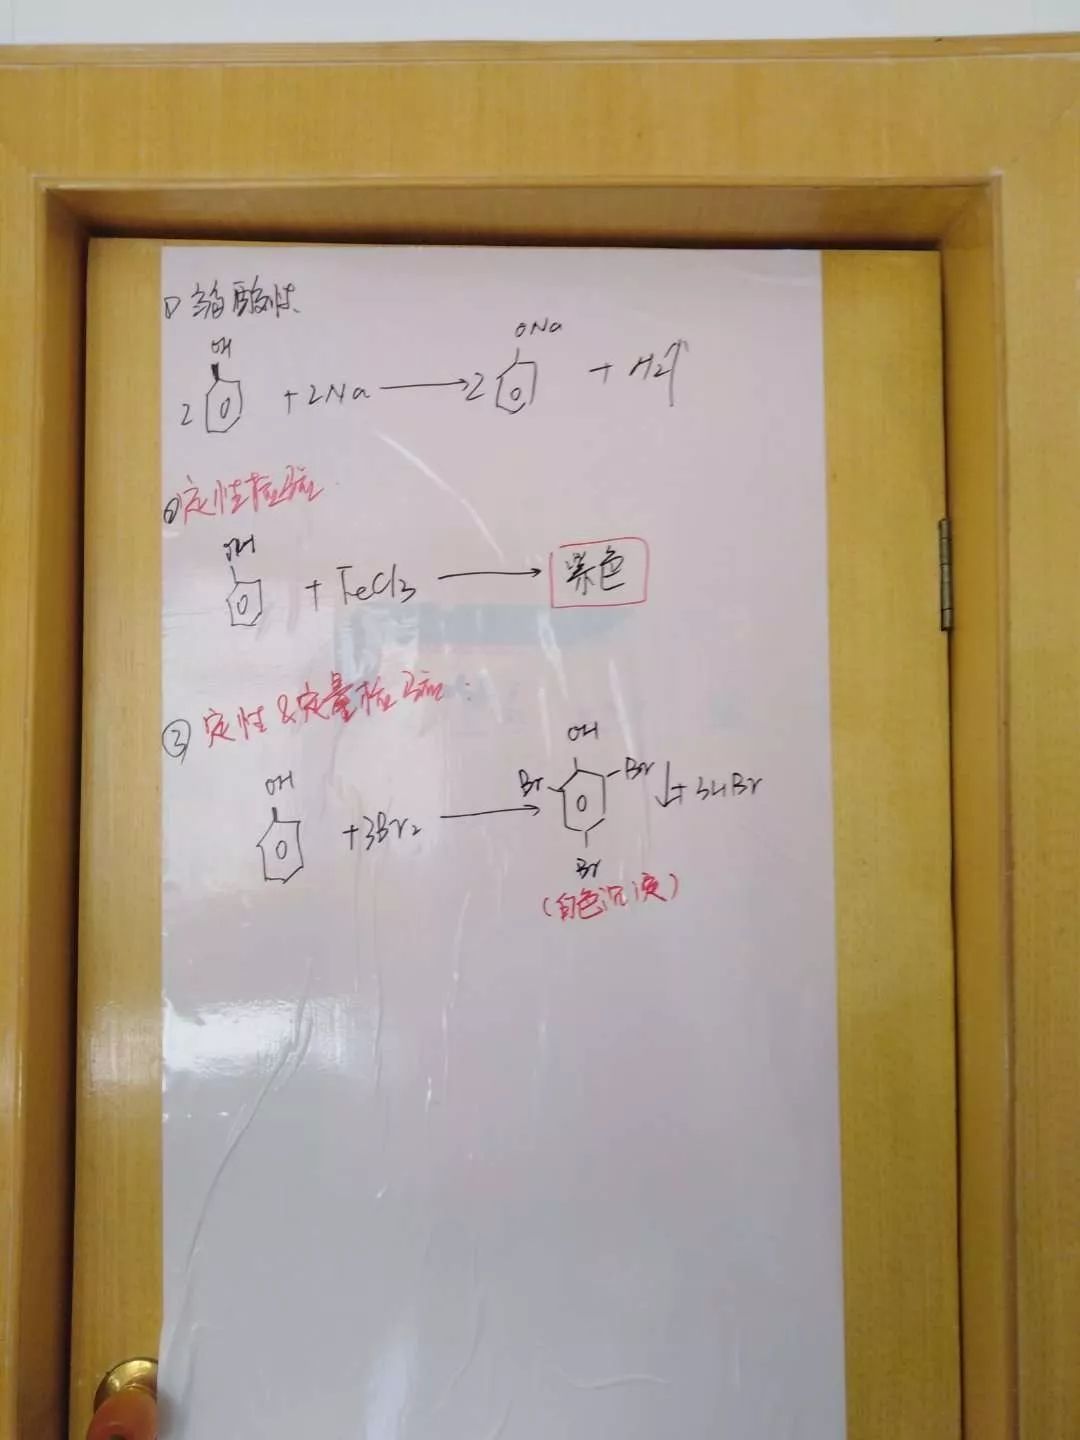 ① 弱酸性
OH ONa
2 + 2Na → 2 + H2↑
② 定性检验
OH
+ FeCl3 → 紫色
③ 定性&定量检验:
OH OH
+3Br2 → Br Br ↓+3HBr
Br
(白色沉淀)